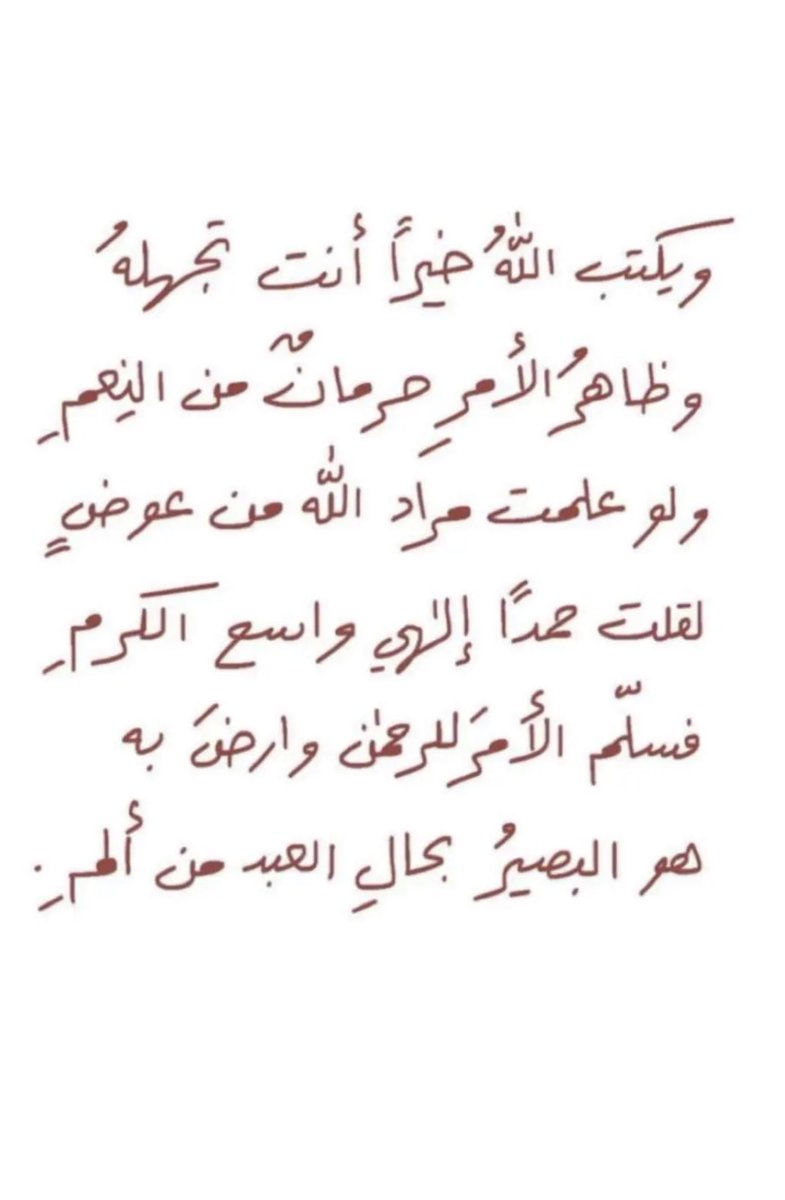 ويكتب اللّٰهُ خيراً أنت تجهلهُ
وظاهرُ الأمرِ حرمانٌ من النِعمِ
ولو علمت مراد اللّٰه من عوضٍ
لقلت حمدًا إلٰهي واسع الكرمِ
فسلّم الأمرَ للرحمٰن وارضَ به
هو البصيرُ بحالِ العبد من ألمِ.